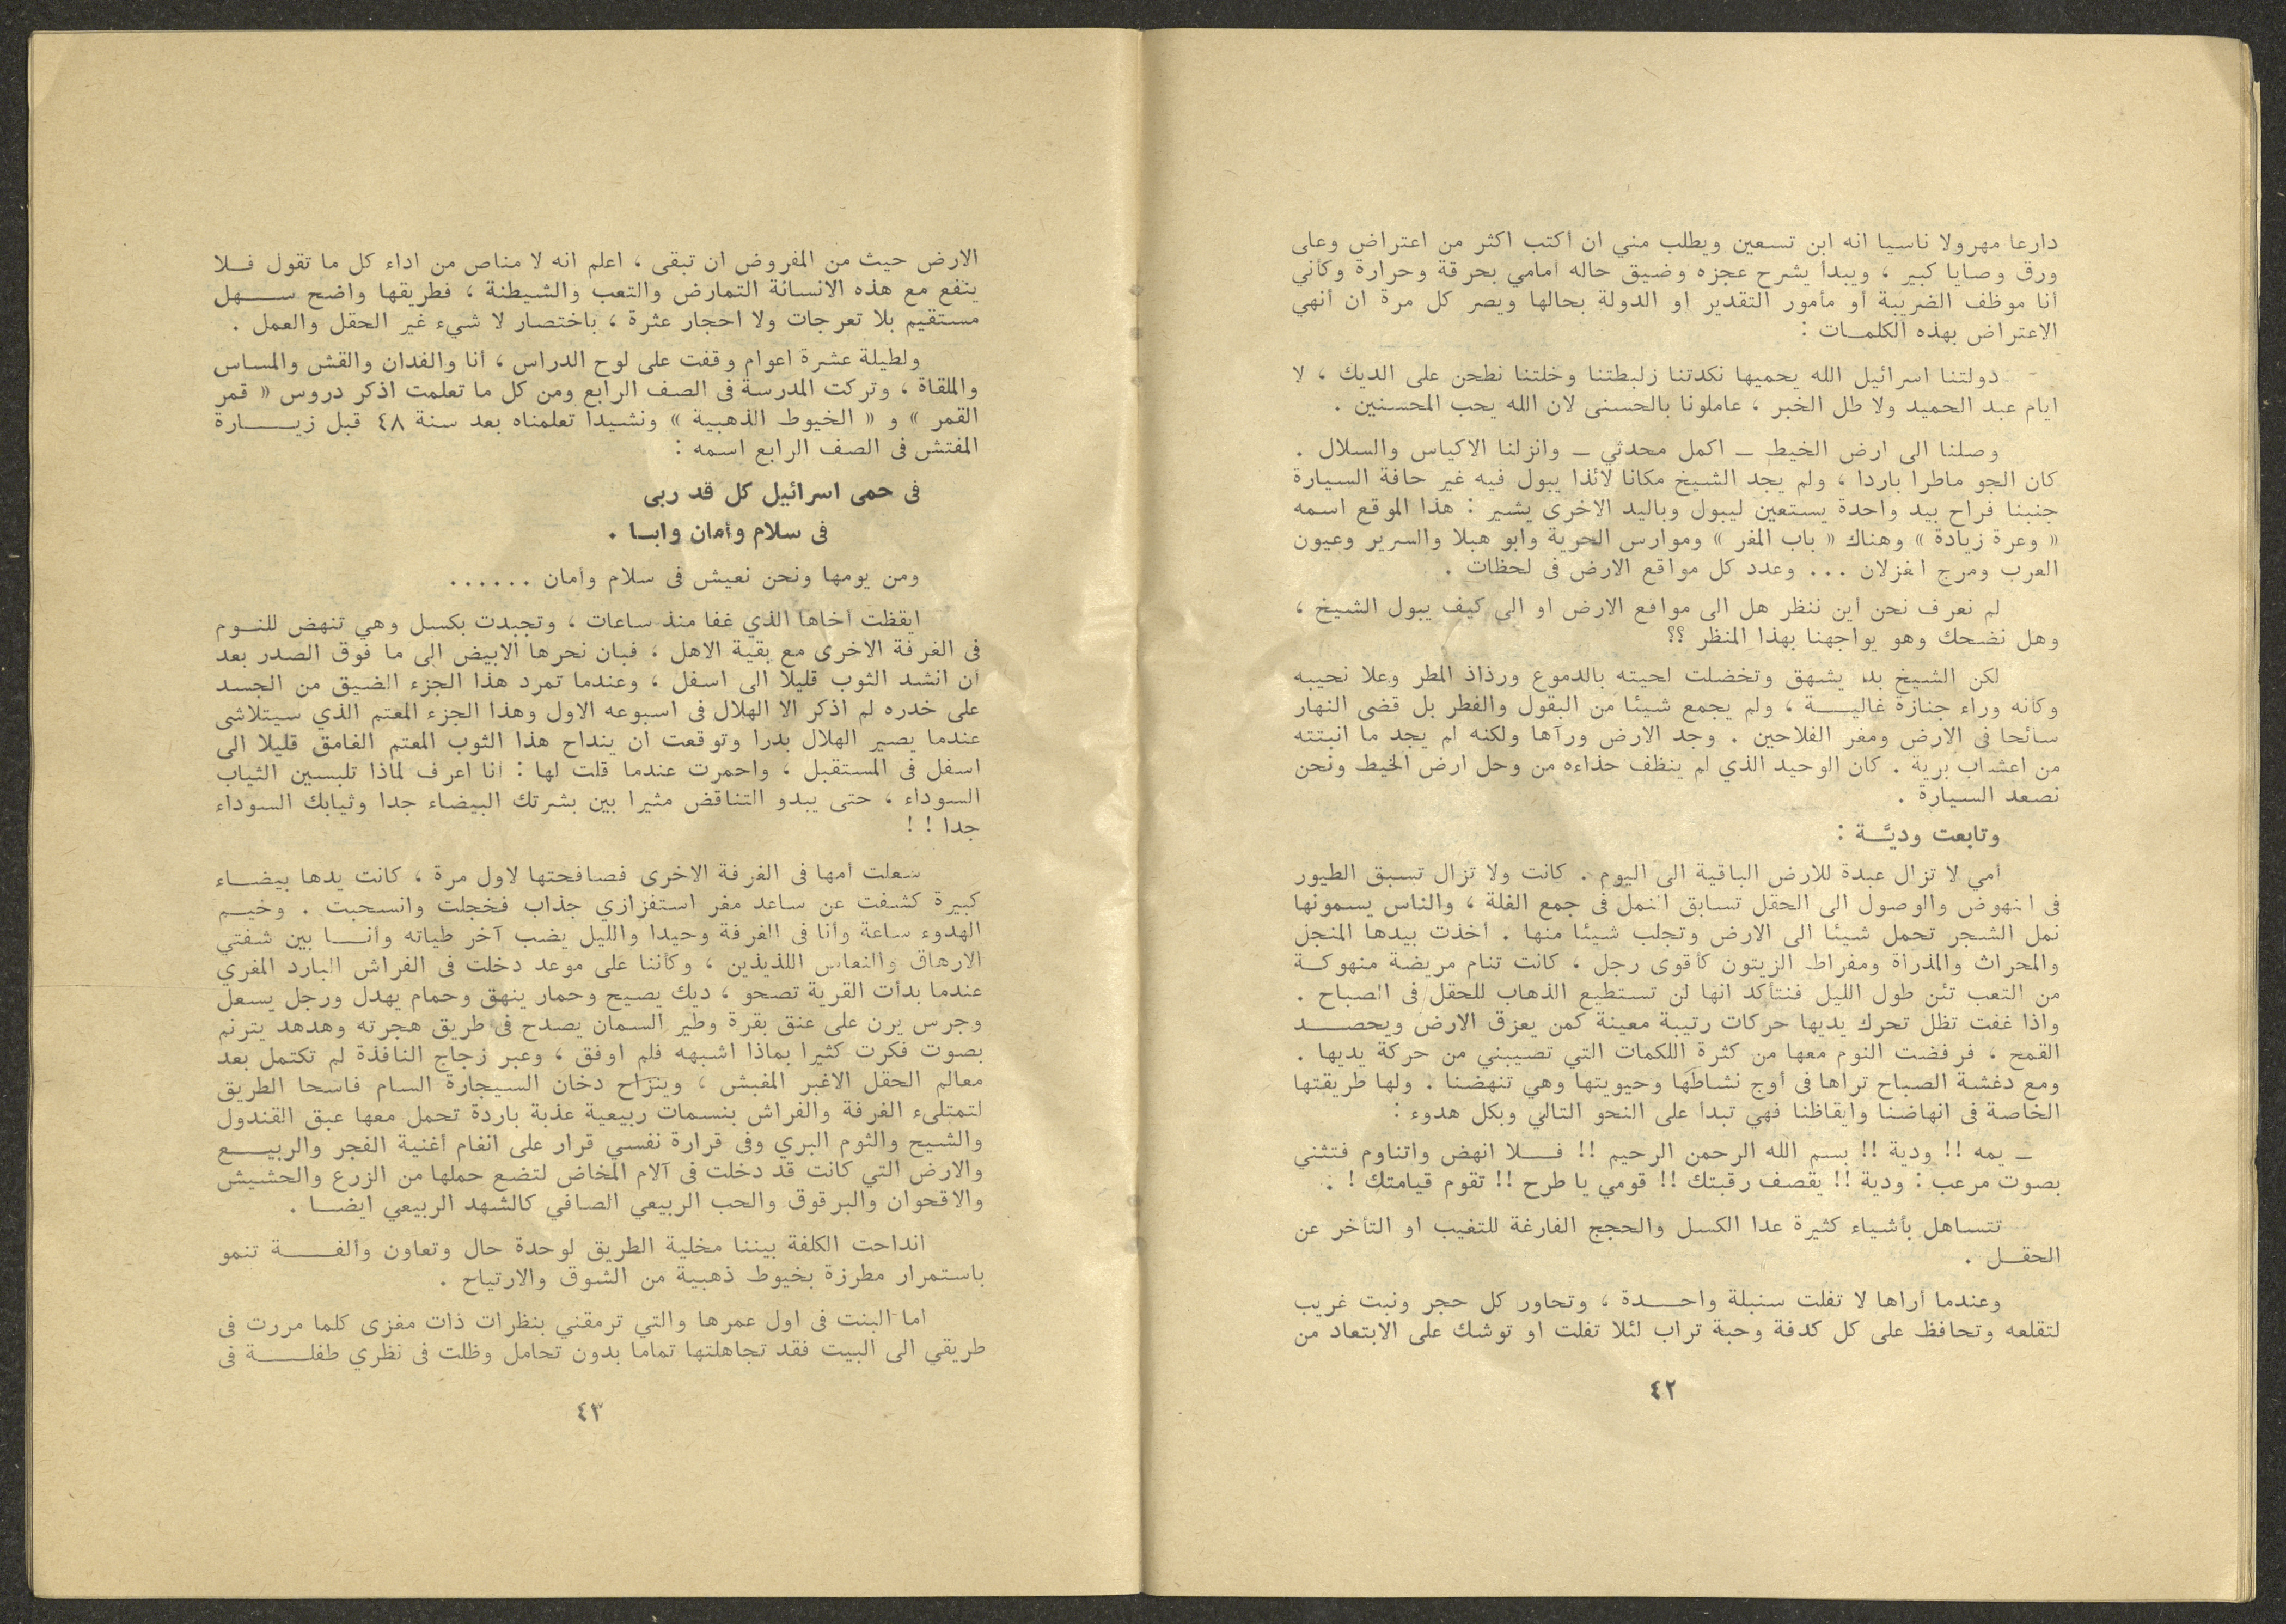 دارعا مهرولا ناسيا انه ابن تسعين ويطلب مني ان أكتب اكثر من اعتراض وعلى
ورق وصايا كبير ، ويبدأ يشرح عجزه وضيق حاله أمامي بحرقة وحرارة وكأني
أنا موظف الضريبة أو مأمور التقدير او الدولة بحالها ويصر كل مرة ان أنهي
الاعتراض بهذه الكلمـات :
دولتنا اسرائيل الله يحميها نكدتنا زلبطتنا وخلتنا نطحن على الديك ، لا
ايام عبد الحميد ولا طل الخبر ، عاملونا بالحسنى لان الله يحب المحسنين .
وصلنا الى ارض الخيط ـ اكمل محدثي ـ وانزلنا الاكياس والسلال .
كان الجو ماطرا باردا ، ولم يجد الشيخ مكانا لائذا يبول فيه غير حافة السيارة
جنبنا فراح بيد واحدة يستعين ليبول وباليد الاخرى يشير : هذا الموقع اسمه
« وعرة زيادة » وهناك « باب المغر » وموارس الحرية وابو هبلا والسرير وعيون
العرب ومرج الغزلان ... وعدد كل مواقع الارض فى لحظات .
لم نعرف نحن أين ننظر هل الى مواقع الارض او الى كيف يبول الشيخ ،
وهل نضحك وهو يواجهنا بهذا المنظر ؟؟
لكن الشيخ بدا يشهق وتخضلت لحيته بالدموع ورذاذ المطر وعلا نحيبه
وكأنه وراء جنازة غاليــة ، ولم يجمع شيئا من البقول والفطر بل قضى النهار
سائحا فى الارض ومغر الفلاحين . وجد الارض ورآها ولكنه لم يجد ما انبتته
من اعشاب برية . كان الوحيد الذي لم ينظف حذاءه من وحل ارض الخيط ونحن
نصعد السيارة .
وتابعت وديَّـة :
أمي لا تزال عبدة للارض الباقية الى اليوم . كانت ولا تزال تسبق الطيور
فى النهوض والوصول الى الحقل تسابق النمل فى جمع الغلة ، والناس يسمونها
نمل الشجر تحمل شيئا الى الارض وتجلب شيئا منها . أخذت بيدها المنجل
والمحراث والمذراة ومفراط الزيتون كأقوى رجل ، كانت تنام مريضة منهوكـة
من التعب تئن طول الليل فنتأكد انها لن تستطيع الذهاب للحقل فى الصباح .
واذا غفت تظل تحرك يديها حركات رتيبة معينة كمن يعزق الارض ويحصــد
القمح ، فرفضت النوم معها من كثرة اللكمات التي تصيبني من حركة يديها .
ومع دغشة الصباح تراها فى أوج نشاطها وحيويتها وهي تنهضنا . ولها طريقتها
الخاصة فى انهاضنا وايقاظنا فهي تبدأ على النحو التالي وبكل هدوء :
ـ يمه !! ودية !! بسم الله الرحمن الرحيم !! فــلا انهض واتناوم فتثني
بصوت مرعب : ودية !! يقصف رقبتك !! قومي يا طرح !! تقوم قيامتك ! .
تتساهل بأشياء كثيرة عدا الكسل والحجج الفارغة للتغيب او التأخر عن
الحقـل .
وعندما أراها لا تفلت سنبلة واحــدة ، وتحاور كل حجر ونبت غريب
لتقلعه وتحافظ على كل كدفة وحبة تراب لئلا تفلت او توشك على الابتعاد من
٤٢
الارض حيث من المفروض ان تبقى ، اعلم انه لا مناص من اداء كل ما تقول فـلا
ينفع مع هذه الانسانة التمارض والتعب والشيطنة ، فطريقها واضح ســهل
مستقيم بلا تعرجات ولا احجار عثرة ، باختصار لا شيء غير الحقل والعمل .
ولطيلة عشرة اعوام وقفت على لوح الدراس ، أنا والفدان والقش والمساس
والملقاة ، وتركت المدرسة فى الصف الرابع ومن كل ما تعلمت اذكر دروس « قمر
القمر » و « الخيوط الذهبية » ونشيدا تعلمناه بعد سنة ٤٨ قبل زيــارة
المفتش فى الصف الرابع اسمه :
فى حمى اسرائيل كل قد ربى
فى سلام وأمان وابـا .
ومن يومها ونحن نعيش فى سلام وأمان ......
ايقظت أخاها الذي غفا منذ ساعات ، وتجبدت بكسل وهي تنهض للنـوم
فى الغرفة الاخرى مع بقية الاهل ، فبان نحرها الابيض الى ما فوق الصدر بعد
ان انشد الثوب قليلا الى اسفل ، وعندما تمرد هذا الجزء الضيق من الجسد
على خدره لم اذكر الا الهلال فى اسبوعه الاول وهذا الجزء المعتم الذي سيتلاشى
عندما يصير الهلال بدرا وتوقعت ان ينداح هذا الثوب المعتم الغامق قليلا الى
اسفل فى المستقبل ، واحمرت عندما قلت لها : أنا اعرف لماذا تلبسين الثياب
السوداء ، حتى يبدو التناقض مثيرا بين بشرتك البيضاء جدا وثيابك السوداء
جدا ! !
سعلت أمها فى الغرفة الاخرى فصافحتها لاول مرة ، كانت يدها بيضـاء
كبيرة كشفت عن ساعد مغر استفزازي جذاب فخجلت وانسحبت . وخيـم
الهدوء ساعة وأنا فى الغرفة وحيدا والليل يضب آخر طياته وأنــا بين شفتي
الارهاق والنعاس اللذيذين ، وكأننا على موعد دخلت فى الفراش البارد المغري
عندما بدأت القرية تصحو ، ديك يصيح وحمار ينهق وحمام يهدل ورجل يسعل
وجرس يرن على عنق بقرة وطير السمان يصدح فى طريق هجرته وهدهد يترنم
بصوت فكرت كثيرا بماذا اشبهه فلم اوفق ، وعبر زجاج النافذة لم تكتمل بعد
معالم الحقل الاغبر المغبش ، وينزاح دخان السيجارة السام فاسحا الطريق
لتمتلىء الغرفة والفراش بنسمات ربيعية عذبة باردة تحمل معها عبق القندول
والشيح والثوم البري وفى قرارة نفسي قرار على انغام أغنية الفجر والربيــع
والارض التي كانت قد دخلت فى آلام المخاض لتضع حملها من الزرع والحشيش
والاقحوان والبرقوق والحب الربيعي الصافي كالشهد الربيعي ايضـا .
انداحت الكلفة بيننا مخلية الطريق لوحدة حال وتعاون وألفــة تنمو
باستمرار مطرزة بخيوط ذهبية من الشوق والارتياح .
اما البنت فى اول عمرها والتي ترمقني بنظرات ذات مغزى كلما مررت فى
طريقي الى البيت فقد تجاهلتها تماما بدون تحامل وظلت فى نظري طفلــة فى
٤٣